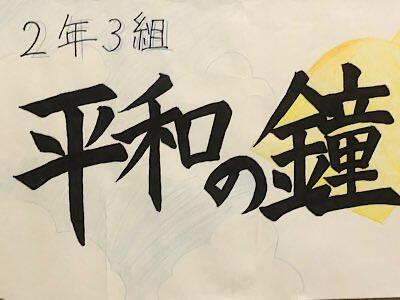 2年3組
平和の鐘